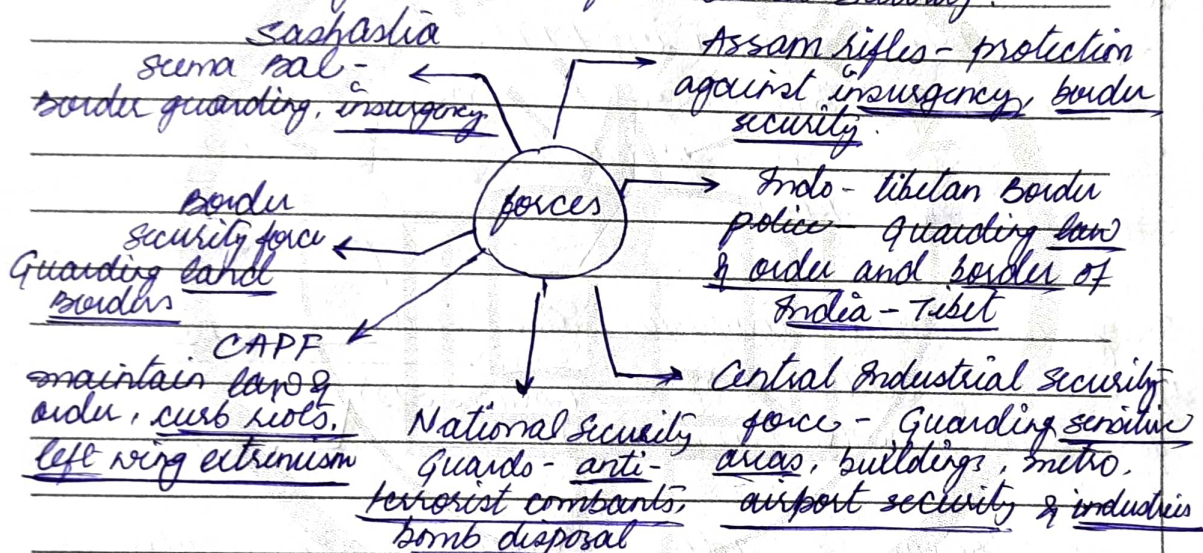 Sashastra
Seema Bal -
Border guarding, insurgency.
Assam rifles - protection
against insurgency, border
security.
forces
Indo - tibetan Border
police - Guarding law
& order and border of
India - Tibet
Border
Security force
Guarding land
Borders
CAPF
maintain law &
order, curb riots,
left wing extremism
National Security
Guards - anti-
terrorist combants,
bomb disposal
Central Industrial Security
force - Guarding sensitive
areas, buildings, metro,
airport security & industries